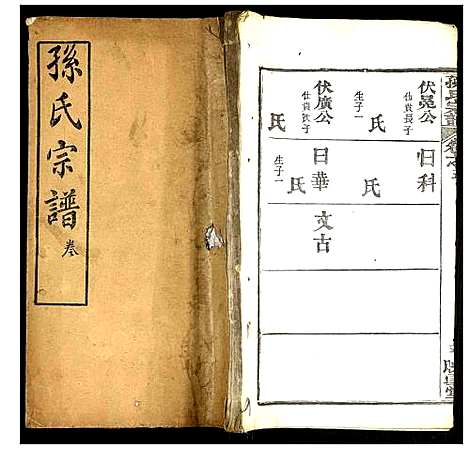 孫氏宗譜
卷
孫氏宗譜
伏冕公
仕貴長子
生子一
氏
伏廣公
仕貴次子
生子一
氏
日科
氏
日華
氏
生子一
文古